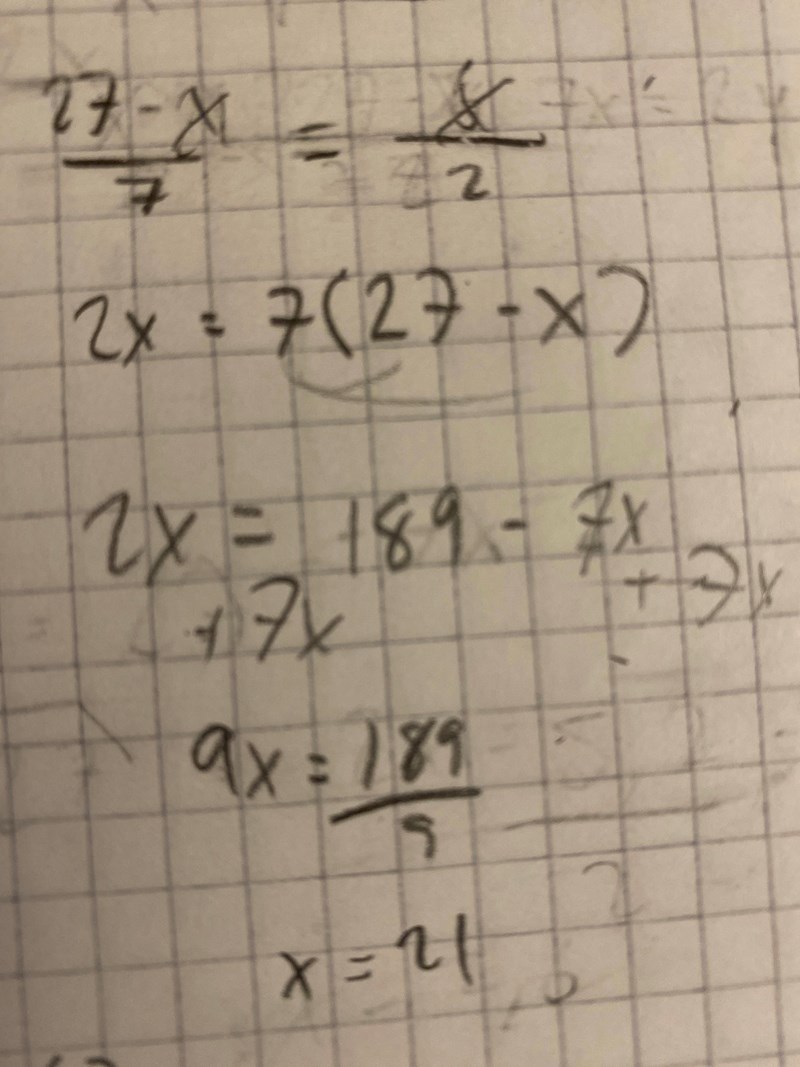 27 - x / 7 = x / 2
2x = 7(27 - x)
2x = 189 - 7x
+ 7x + 7x
9x = 189 / 9
x = 21